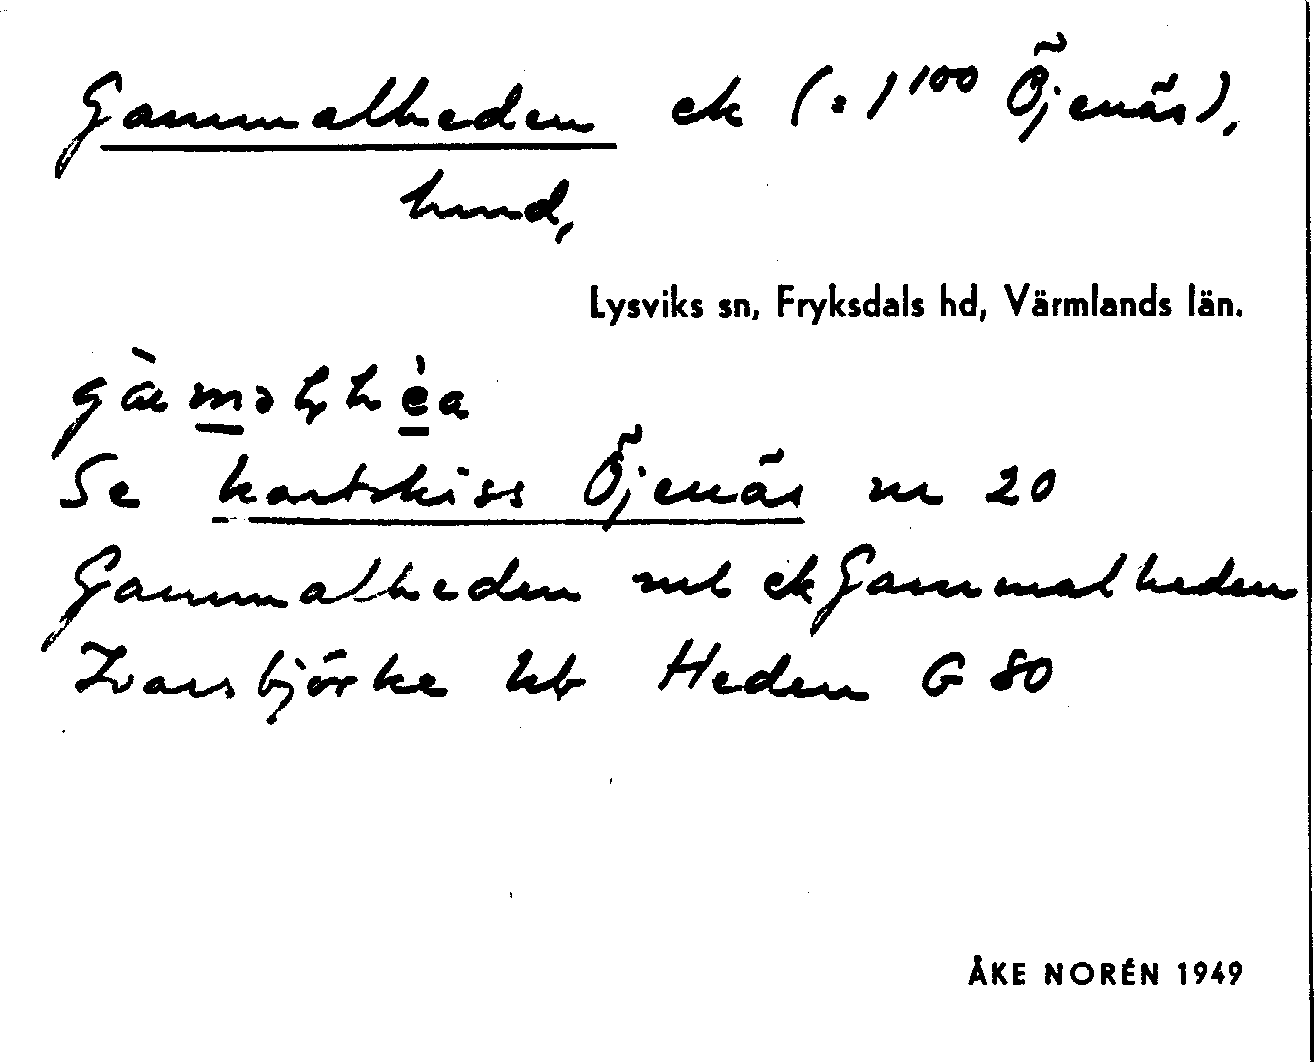 Gammalheden ek (= 1¹⁰⁰ Öjenäs),
hmd,
Lysviks sn, Fryksdals hd, Värmlands län.
Se kartskiss Öjenäs nr 20
Gammalheden mb ek Gammalheden
Ivarsbjörke hb Heden G 80
ÅKE NORÉN 1949